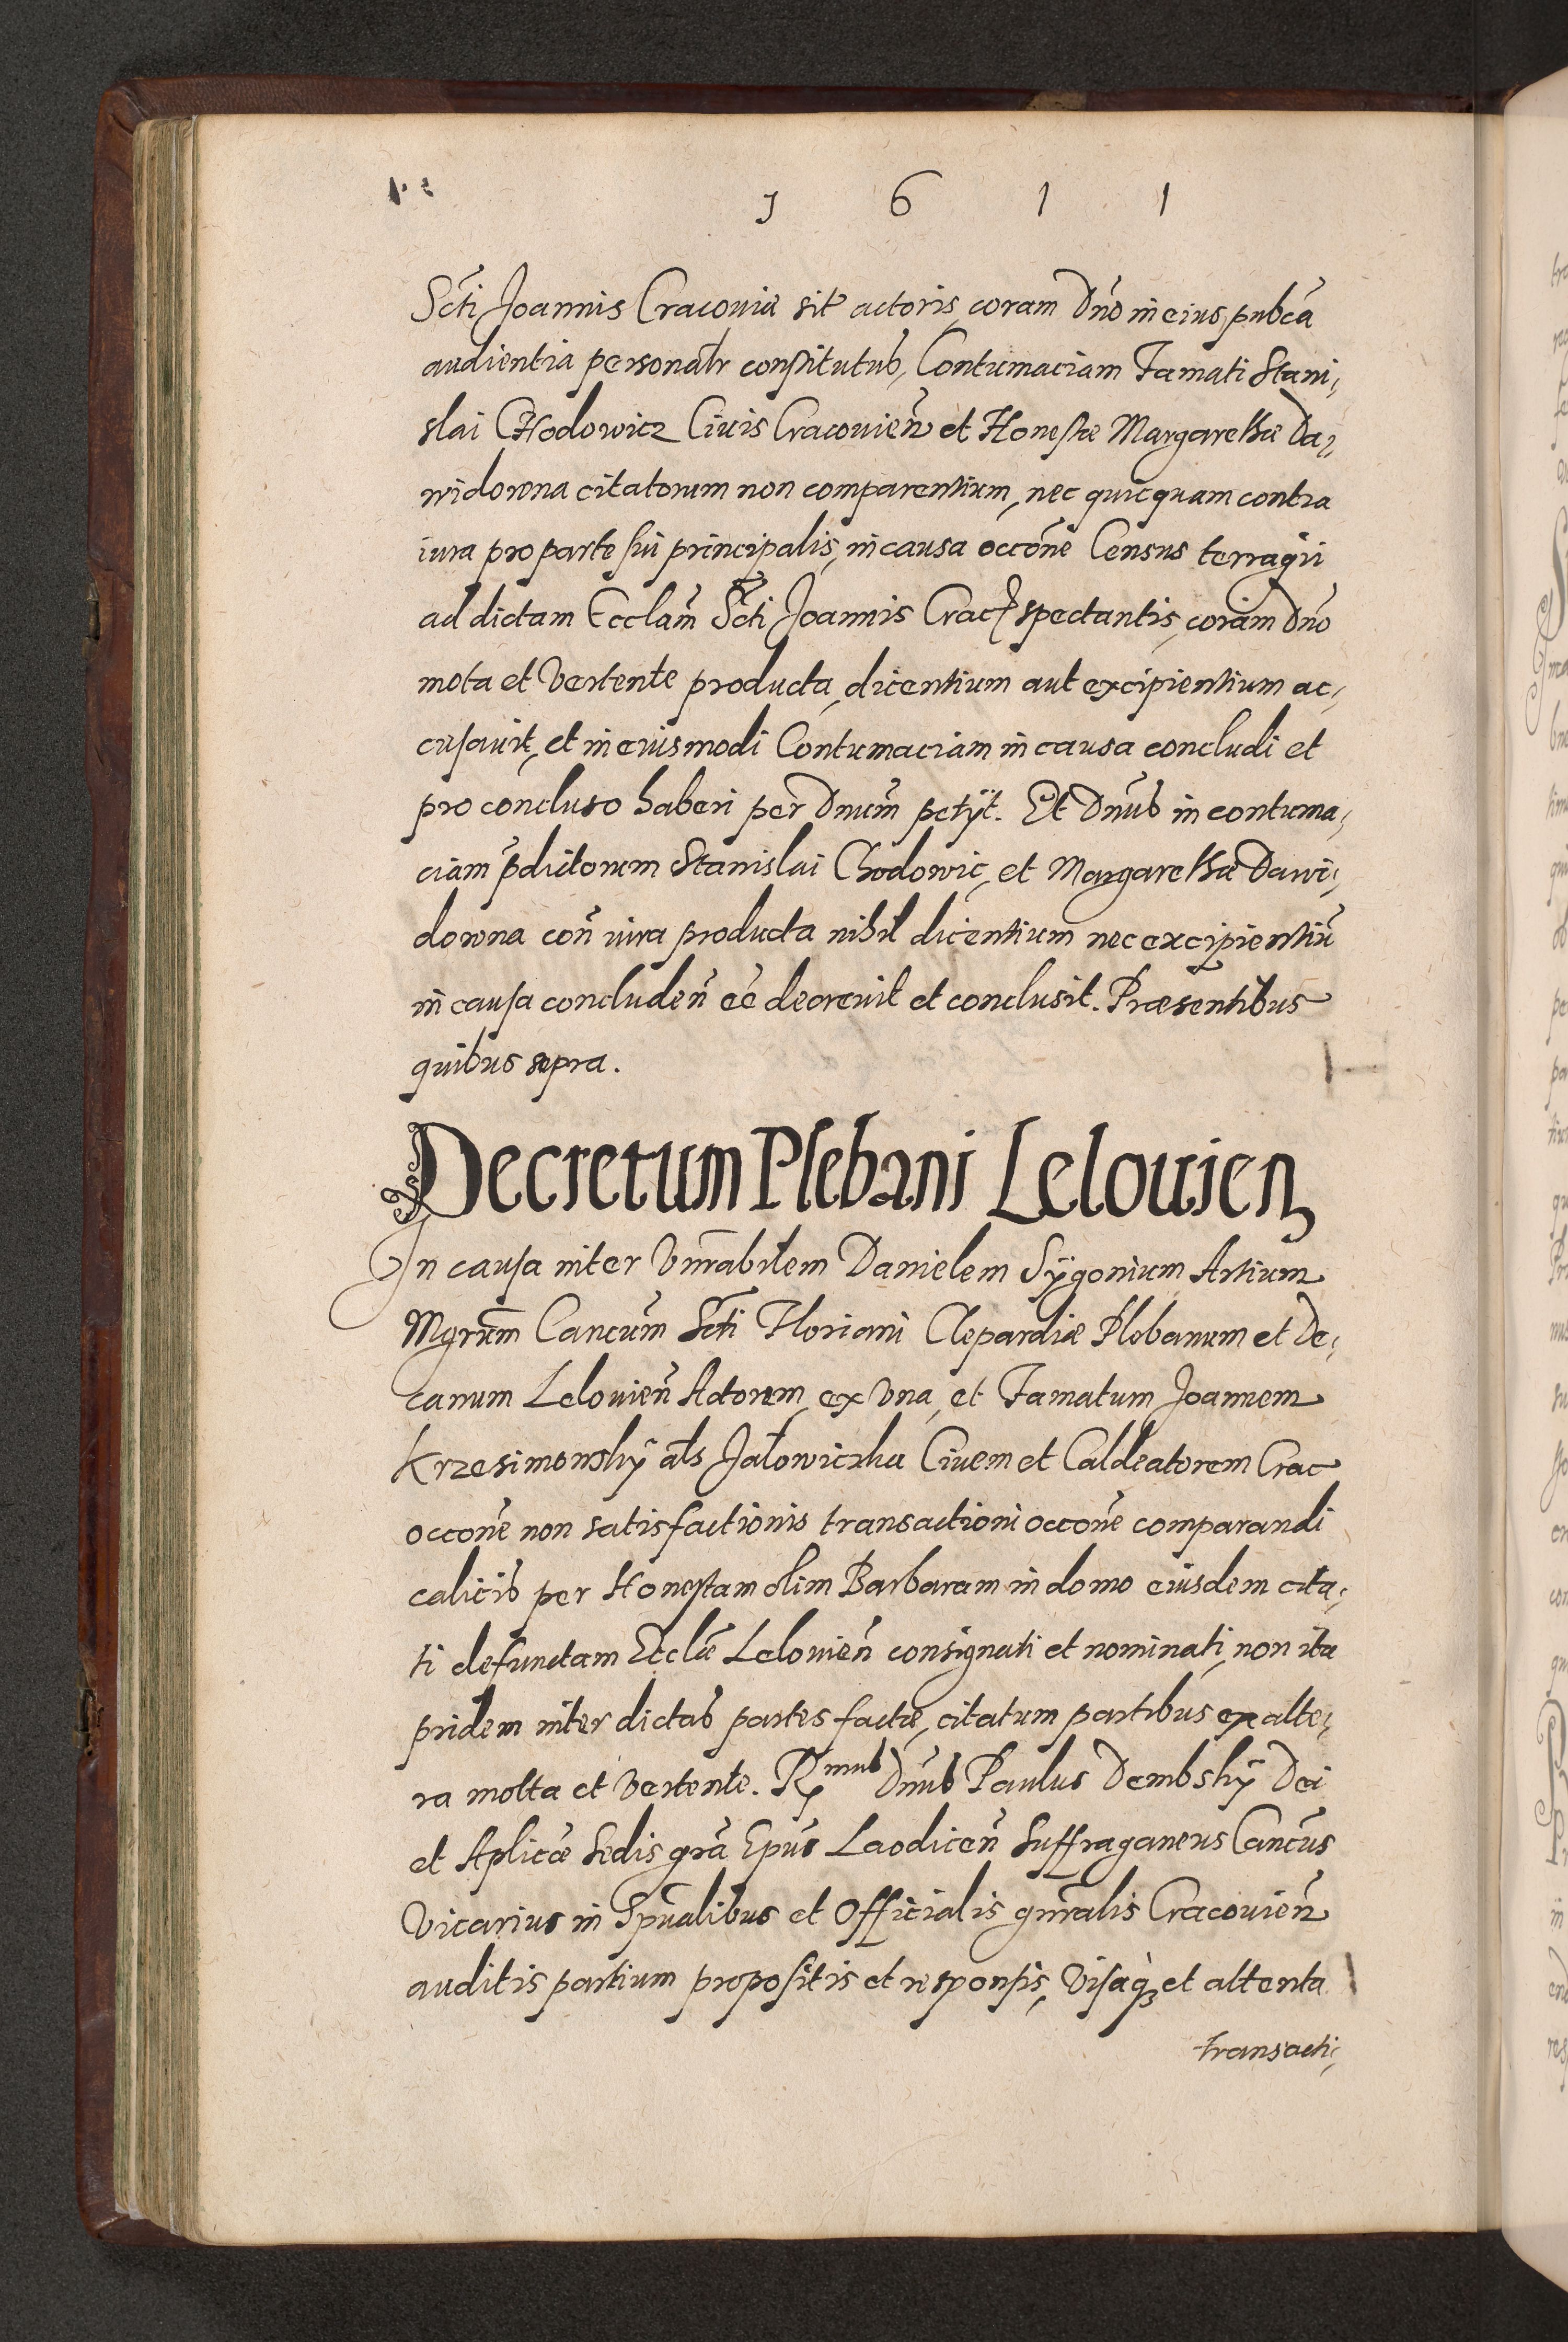 1 6 1 1
Scti Joannis Cracouiæ sit actoris, coram Dno in eius pubca
audientia personalr constitutus, Contumaciam Famati Stani,
slai Chodowicz Ciuis Cracouien et Honestæ Margarethæ Da,
widowna citatorum non comparentium, nec quicquam contra
iura pro parte sui principalis, in causa occone Census terragii
ad dictam Ecclam Scti Joannis Crac spectantis, coram Dno
mota et Vertente producta, dicentium aut excipientium ac,
cusauit, et in eiusmodi Contumaciam in causa concludi et
pro concluso haberi per Dnum petÿt. Et Dnus in contuma,
ciam pdictorum Stanislai Chodowic, et Margarethæ Dawi,
downa con iura producta nihil dicentium nec excipientiu
in causa concluden eē decreuit et conclusit. Præsentibus
quibus supra.
Decretum Plebani Lelouien
In causa inter Vnrabilem Danielem Sÿgonium Artium
Mgrum Cancum Scti Floriani Clepardiæ Plebanum et De,
canum Lelouien Actorem, ex Vna, et Famatum Joannem
Krzesimowskÿ als Jałowiczka Ciuem et Caldeatorem Crac
occone non satisfactionis transactioni occone comparandi
calicis per Honestam olim Barbaram in domo eiusdem cita,
ti defunctam Ecclæ Lelouien consignati et nominati, non ita
pridem inter dictas partes factæ, citatum partibus ex alte,
ra motta et Vertente. Rmus Dnus Paulus Dembskÿ Dei
et Aplicæ Sedis gra Epus Laodicen Suffraganeus Cancus
Vicarius in Spualibus et Officialis gnralis Cracouien
auditis partium propositis et responsis, Visaq; et attenta
transacti,